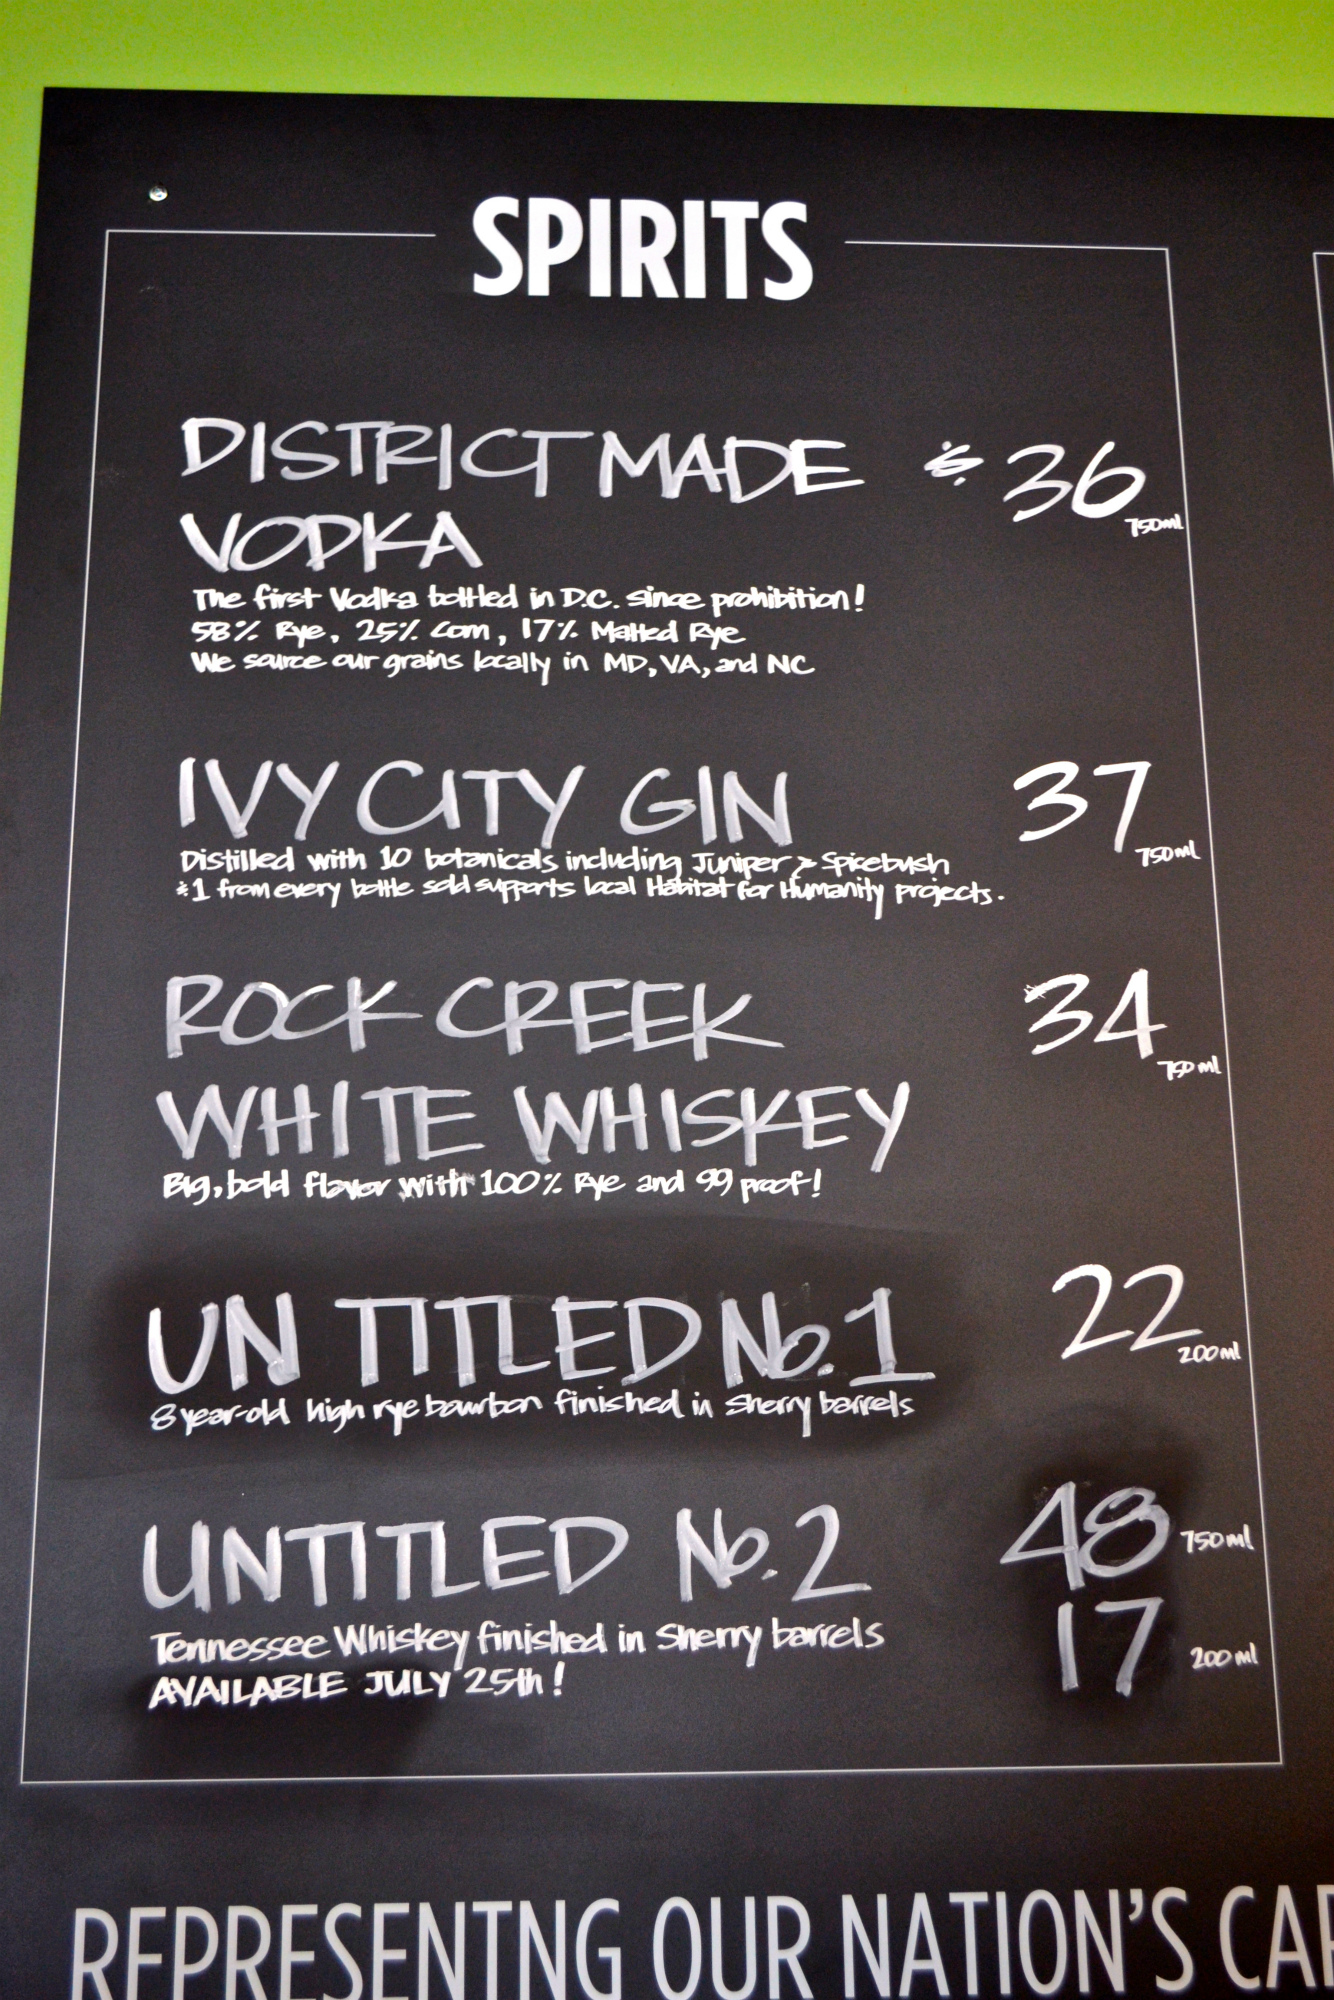 SPIRITS
DISTRICT MADE $36
VODKA 750ml
The first Vodka bottled in D.C. since prohibition!
58% Rye, 25% Corn, 17% Malted Rye
We source our grains locally in MD, VA, and NC
IVY CITY GIN 37
750ml
Distilled with 10 botanicals including Juniper & Spicebush
$1 from every bottle sold supports local Habitat for Humanity projects.
ROCK CREEK 34
750ml
WHITE WHISKEY
Big, bold flavor with 100% Rye and 99 proof!
UN TITLED No. 1 22
200ml
8 year-old high rye bourbon finished in Sherry barrels
UNTITLED No. 2 48 750ml
17 200ml
Tennessee Whiskey finished in Sherry barrels
AVAILABLE JULY 25th!
REPRESENTNG OUR NATION'S